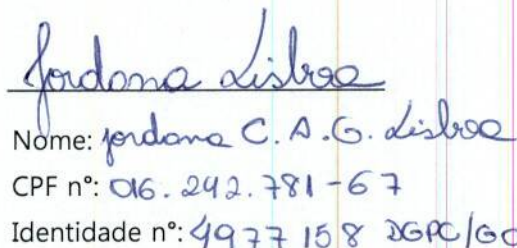 Jordana Lisboa
Nome: Jordana C. A. G. Lisboa
CPF nº: 016.242.781-67
Identidade nº: 4977158 DGPC/GO